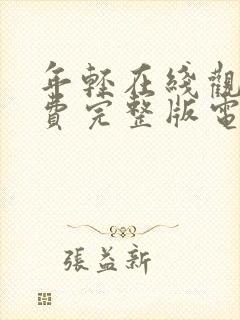 年輕在綫觀
費完整版電
張益新